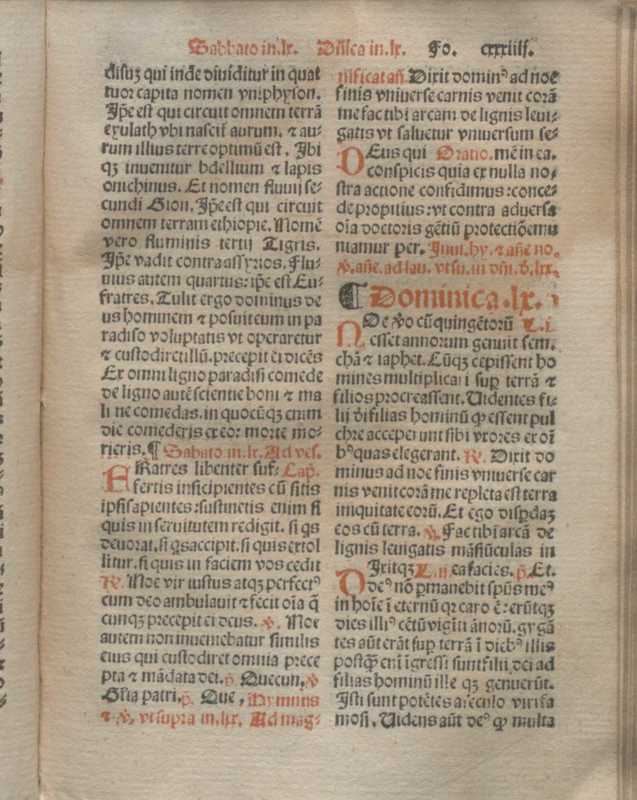 Sabbato in.lx. Dñica in.lx. Fo. cxxxiiij.
disuꝫ qui inde diuiditur in quat
tuor capita nomen vniphyson.
Ip̄e est qui circuit omnem terrā
euilath vbi nascit̄ aurum. ⁊ au-
rum illius terre optimū est. Ibi
qꝫ inuenitur bdellium ⁊ lapis
onichinus. Et nomen fluuij se-
cundi Gion. Ip̄e est qui circuit
omnem terram ethiopie. Nomē
vero fluminis tertij Tigris.
Ip̄e vadit contra assyrios. Flu-
uius autem quartus: ip̄e est Eu-
fratres. Tulit ergo dominus de
us hominem ⁊ posuit eum in pa
radiso voluptatis vt operaretur
⁊ custodiret illū. precepit ei dicēs
Ex omni ligno paradisi comede
de ligno autē scientie boni ⁊ ma
li ne comedas. in quocūqꝫ enim
die comederis ex eo: morte mo-
rieris. ¶ Sabato in.lx. Ad ves.
FRatres libenter suf= Cap̄.
fertis insicipientes cū sitis
ipsi sapientes: sustinetis enim si
quis in seruitutem redigit. si qs
deuorat. si qs accipit. si quis extol
litur. si quis in faciem vos cedit
℟. Noe vir iustus atqꝫ perfectꝰ
cum deo ambulauit ⁊ fecit oīa q̄
cunqꝫ precepit ei deus. ℣. Noe
autem non inueniebatur similis
eius qui custodiret omnia prece
pta ⁊ mādata dei. p̄. Quecun. ℣
Glīa patri. p̄. Que. Hymnus
⁊ ℣. vt supra in.lxx. Ad mag-
nificat añ. Dixit dominꝰ ad noe
finis vniuerse carnis venit corā
me fac tibi arcam de lignis leui-
gatis vt saluetur vniuersum se-
DEus qui Oratio. mē in ea.
conspicis quia ex nulla no-
stra actione confidimus: conce-
de propitius: vt contra aduersa
oīa doctoris gētiū protectiōe mu
niamur per. Inui. hy. ⁊ añe no.
℣. añe. ad lau. vt su. in dñi. ī. lxx.
¶ Dominica.lx.
NOe v̄o cū quingētorū L.i.
esset annorum genuit sem.
chā ⁊ iaphet. Cūqꝫ cepissent ho
mines multiplicari sup̄ terrā ⁊
filios procreassent. Uidentes fi-
lij dei filias hominū ꝙ essent pul
chre acceperunt sibi vxores ex oī
bꝰ quas elegerant. ℟. Dixit do
minus ad noe finis vniuerse car
nis venit corā me repleta est terra
iniquitate eorū. Et ego disp̄dā
eos cū terra. ℣. Fac tibi arcā de
lignis leuigatis māsiūculas in
DIxitqꝫ L.ii. ea facies. p̄. Et.
deꝰ nō p̄manebit spūs meꝰ
in hoīe ī eternū qr caro ē: erūtqꝫ
dies illiꝰ cētū viginti ānorū. gygā
tes aūt erāt sup̄ terrā ī diebꝰ illis
postq̄ enī īgressi sunt filij dei ad
filias hominū ille qꝫ genuerūt.
Isti sunt potētes a seculo viri fa
mosi. Uidens aūt deꝰ ꝙ multa